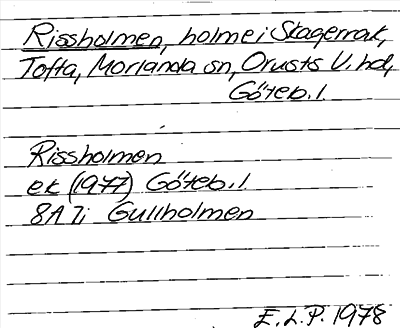 Rissholmen, holme i Skagerrak,
Tofta, Morlanda sn, Orusts V. hd,
Göteb. l.
Rissholmen
ek (1977) Göteb. l
8A 7i Gullholmen
E. L. P. 1978